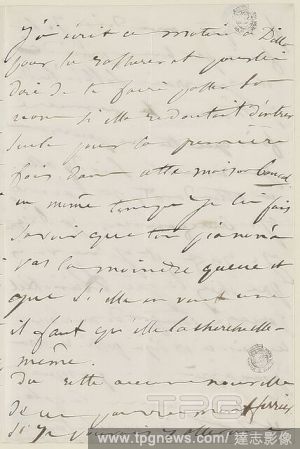 J'ai écrit ce matin à Dill
pour la rassurer et pour lui
dire de te faire passer son
nom si elle redoutait d'entrer
seule pour la première
fois dans cette maison
en même temps je lui fais
savoir que ton piano n'a
pas la moindre queue et
que si elle en veut une
il faut qu'elle la cherche elle-
même.
Du reste aucune nouvelle
je ne
Si je pouvais
TPG
www.tpgnews.com / 達志影像